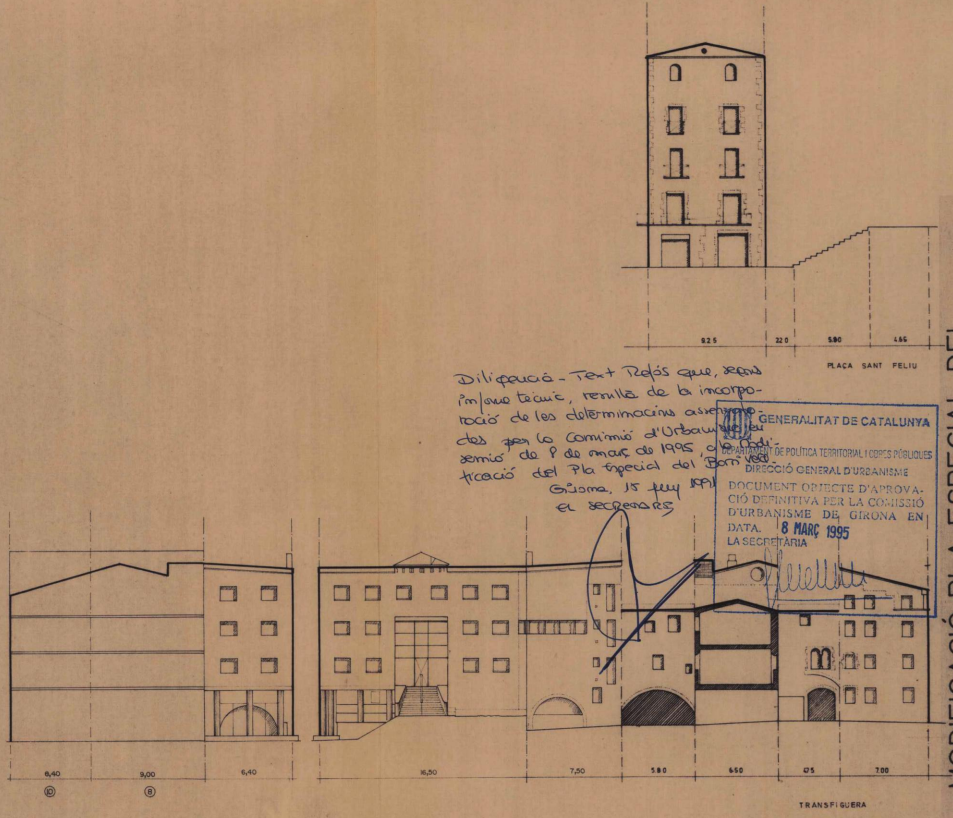 9.25
22 0
5.80
4.66
PLAÇA SANT FELIU
Diligencia - Text Refós que, segons
informe tècnic, resulta de la incorpo-
ració de les determinacions assenyala-
des per la Comissió d'Urbanisme en
sessió de 8 de març de 1995, a la Modi-
ficació del Pla Especial del Barri Vell
Girona, 15 juny 199
EL SECRETARI,
GENERALITAT DE CATALUNYA
DEPARTAMENT DE POLÍTICA TERRITORIAL I OBRES PÚBLIQUES
DIRECCIÓ GENERAL D'URBANISME
DOCUMENT OBJECTE D'APROVA-
CIÓ DEFINITIVA PER LA COMISSIÓ
D'URBANISME DE GIRONA EN
DATA. 8 MARÇ 1995
LA SECRETÀRIA
MODIFICACIÓ PLA ESPECIAL DEL
8,40
9,00
6,40
16,50
7,50
5.80
6.50
7.00
10
8
TRANSFIGUERA